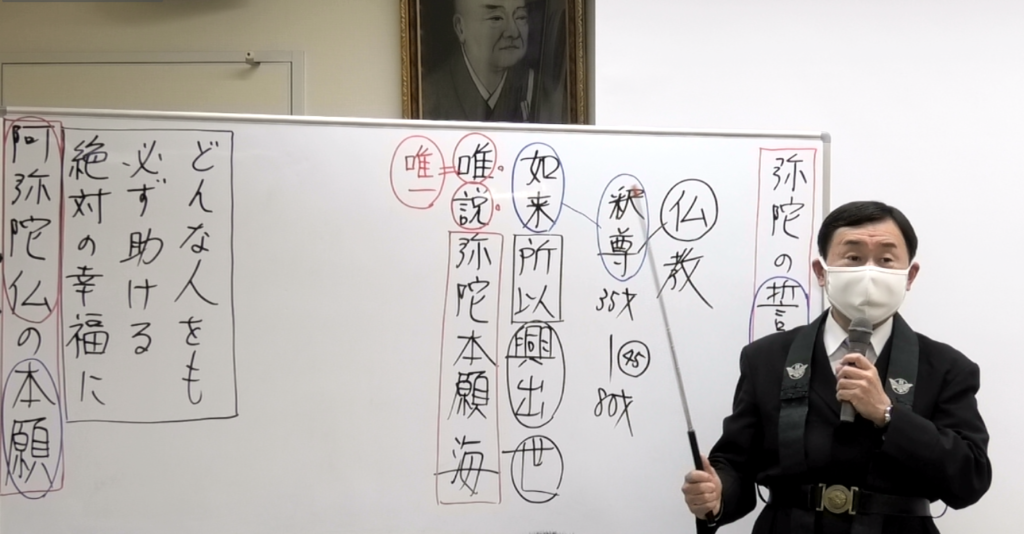 弥陀の誓
仏教
釈尊
35才
45
80才
如来所以興出世
唯説弥陀本願海
唯一
どんな人をも
必ず助ける
絶対の幸福に
阿弥陀仏の本願